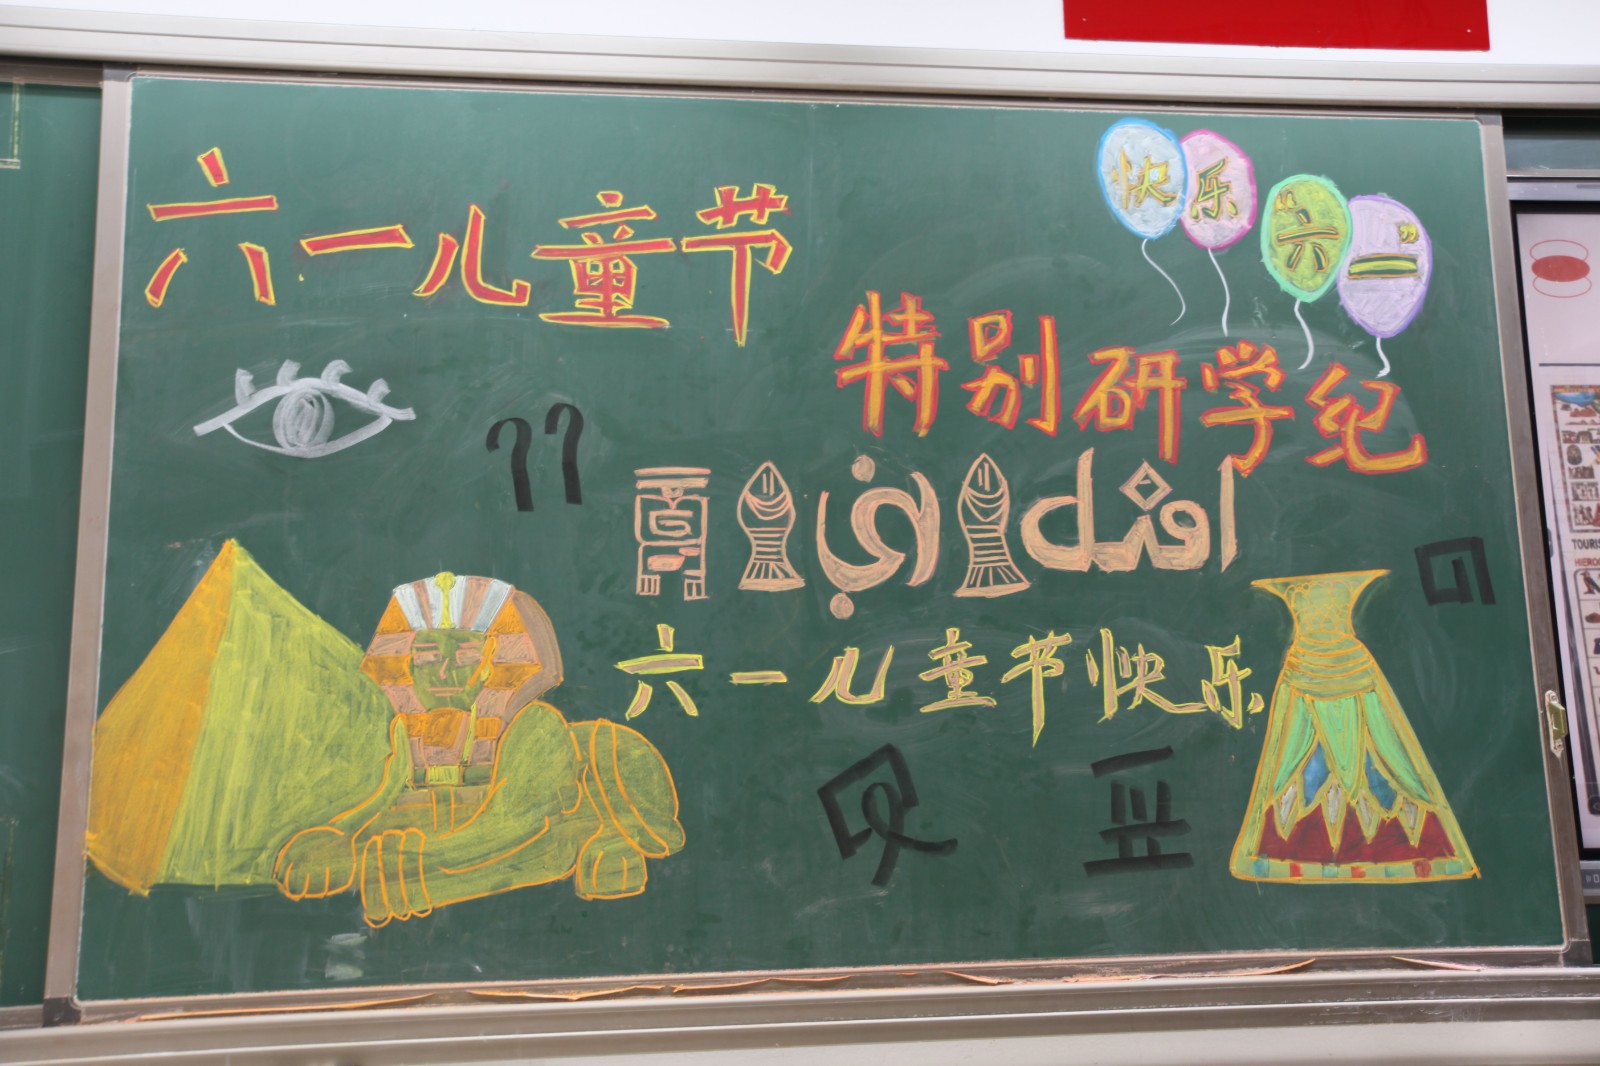 六一儿童节
快乐
“六一”
特别研学纪
六一儿童节快乐
TOURIS
HIERO